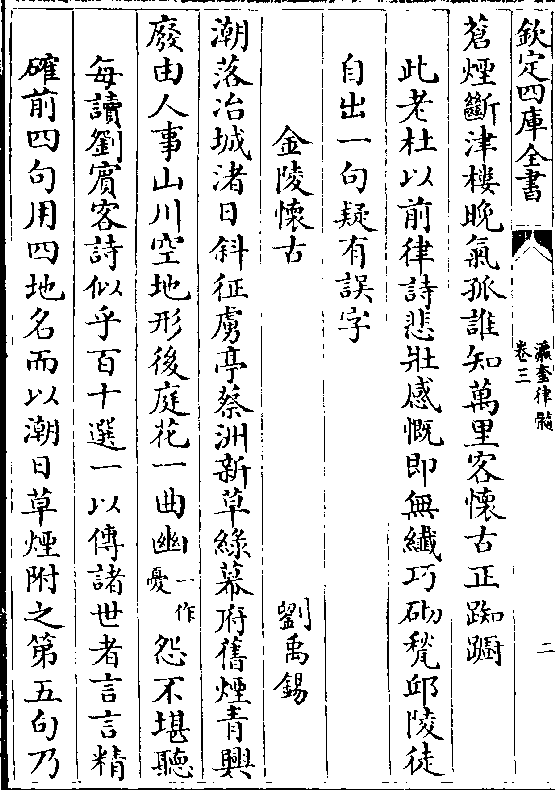 欽定四庫全書
瀛奎律髓
卷三
二
蒼煙斷津樓晚氣孤誰知萬里客懷古正踟躕
此老杜以前律詩悲壯感慨即無纖巧砌甃邱陵徒
自出一句疑有誤字
金陵懷古
劉禹錫
潮落冶城渚日斜征虜亭蔡洲新草綠幕府舊煙青興
廢由人事山川空地形後庭花一曲幽一作憂怨不堪聽
每讀劉賓客詩似乎百十選一以傳諸世者言言精
確前四句用四地名而以潮日草煙附之第五句乃